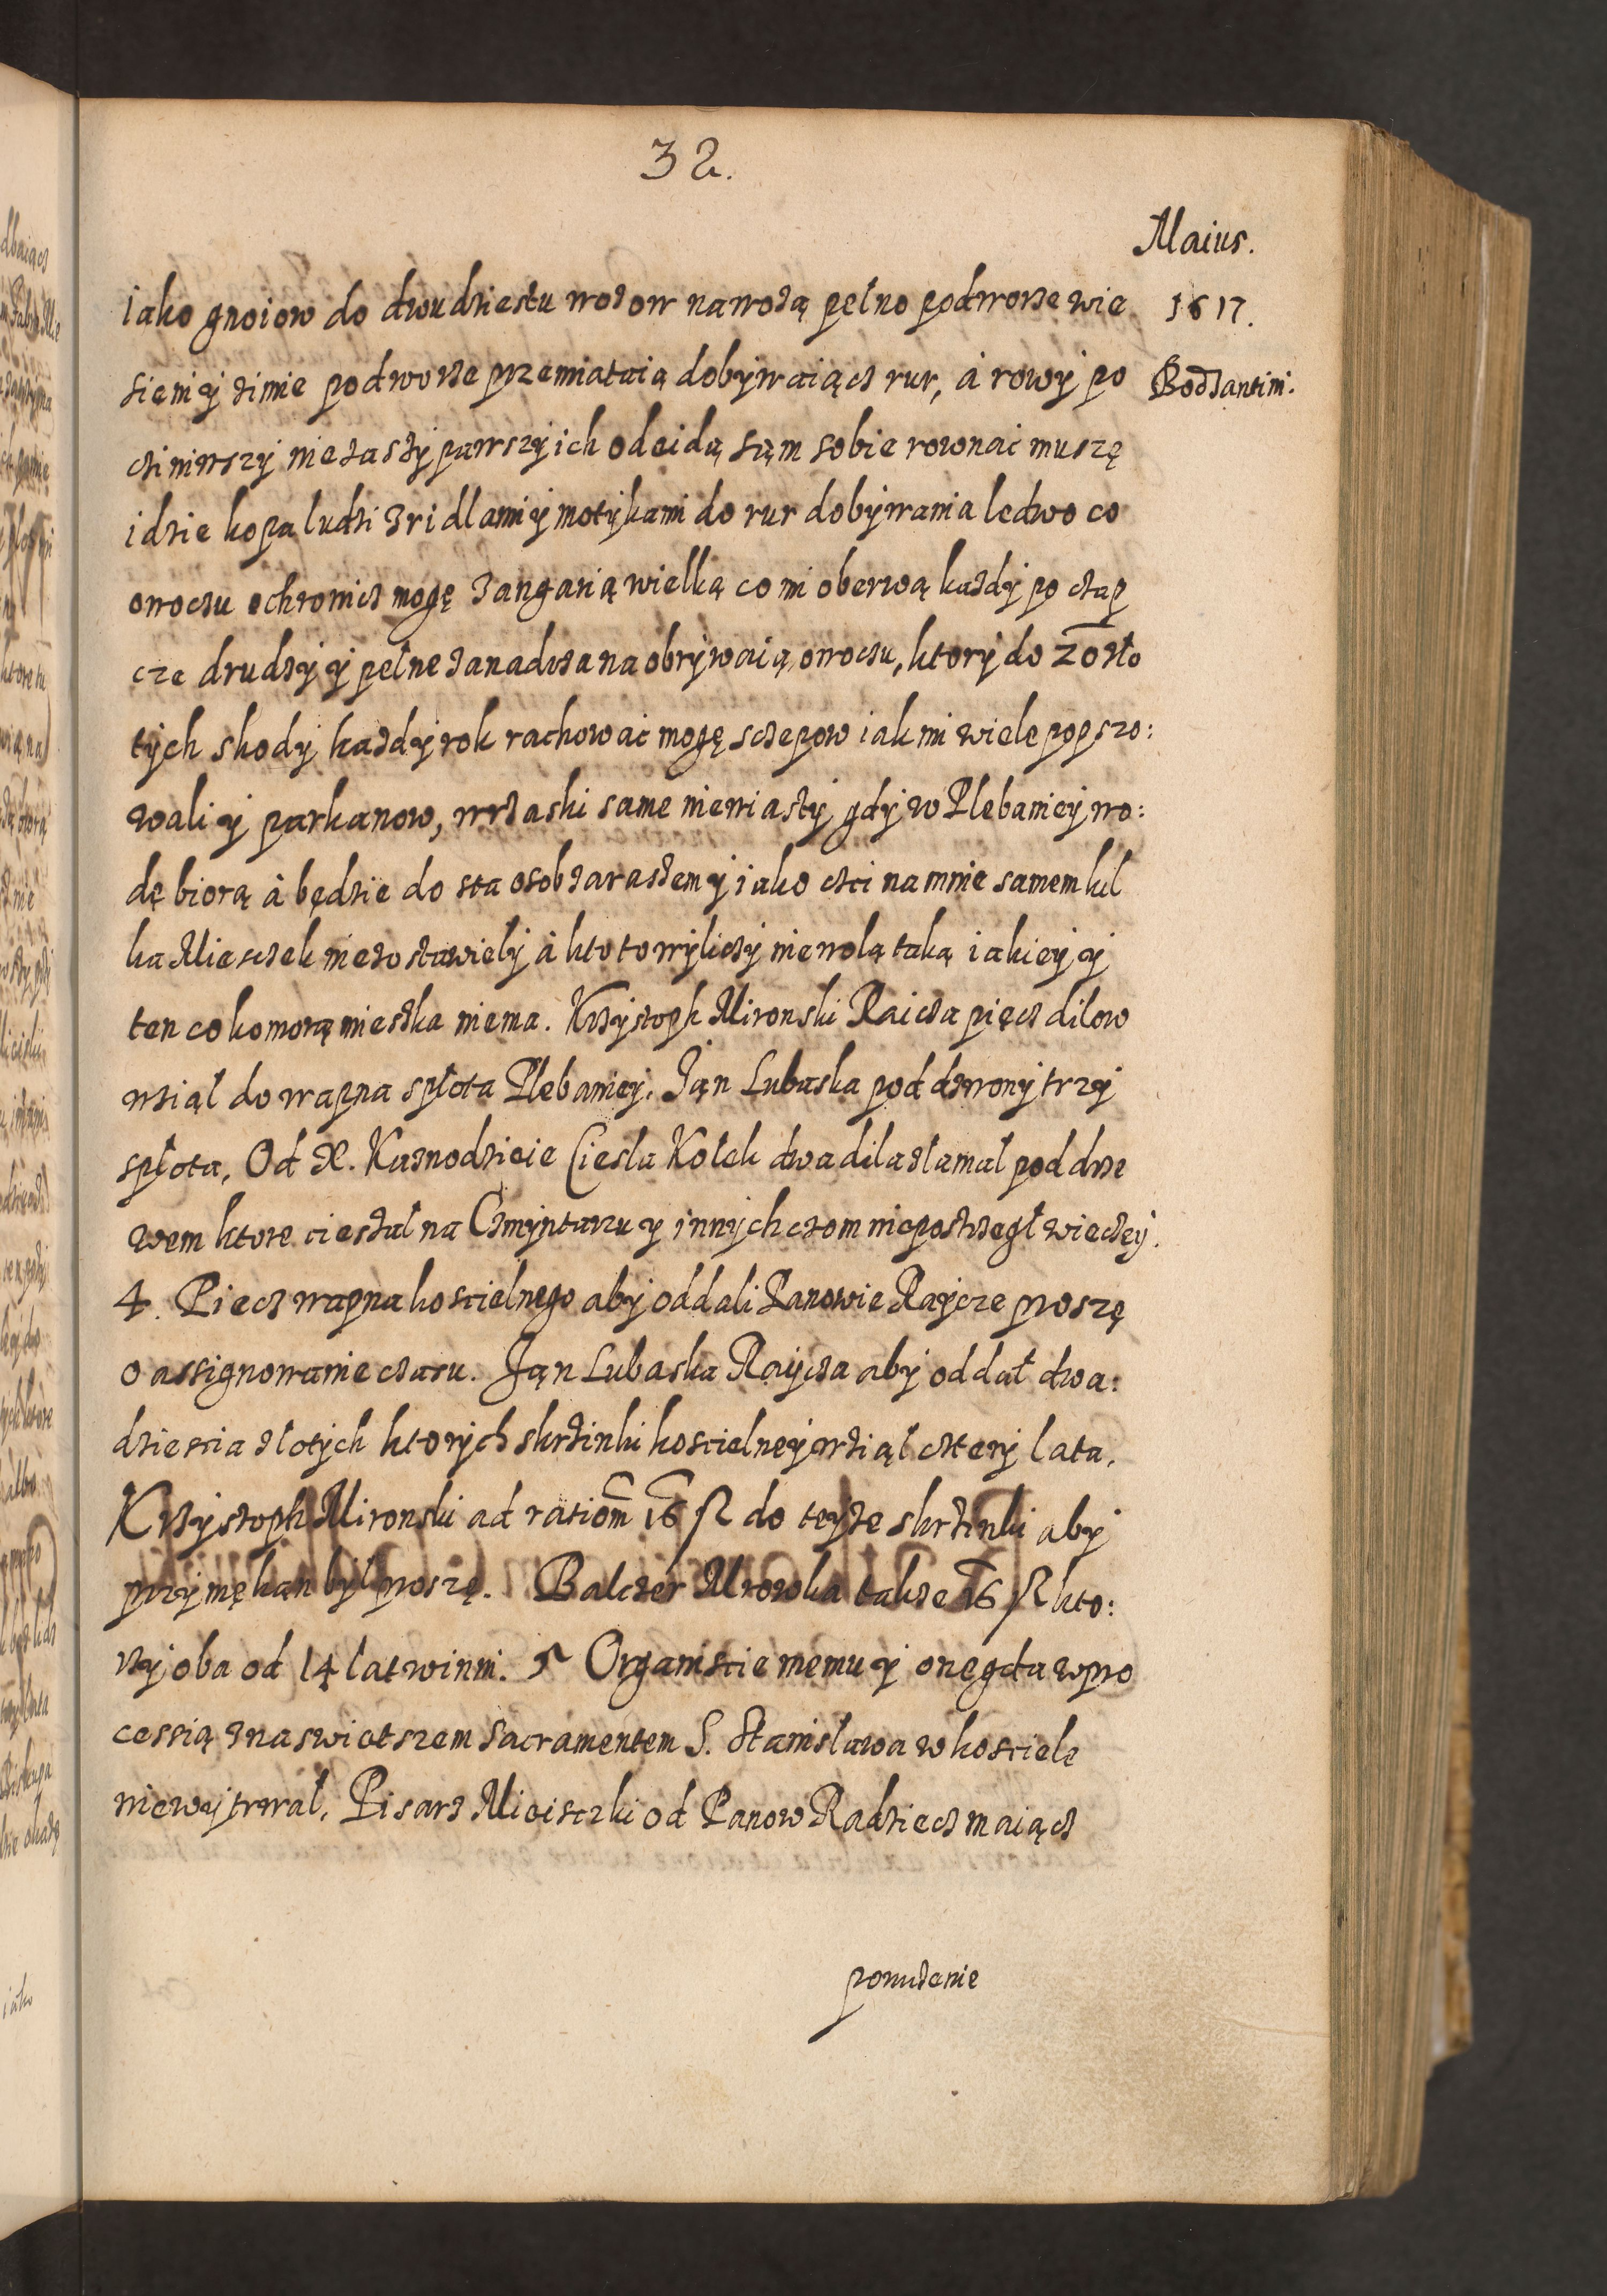 32.
Maius.
iako gnoiow do dwudziestu wozow nawożą pełno podworze wie
1617.
sieni y zimie podworze przemiataią dobywaiącz rur, á rowy po
Bodzantini.
cziniwszy niezasypawszy ich odeidą sąm sobie rownać muszę
idzie kopa ludzi z ridlami y motykami do rur dobywania ledwo co
owoczu ochronicz mogę zangarią wielką co mi oberwą kazdy po czap
cze drudzy y pełne zanadrza na obrywaią owoczu, ktory do 20 zło
tych skody kazdy rok rachować mogę sczepow iak mi wiele popszo:
wali y parkanow, wrzaski same niewiasty gdy w Plebaniey wo:
dę biorą á będzie do sta osob zarazem y iako czci na mnie samem kil
ka Miesczek niezostawiely á kto to wyliczy niewolą taką iakiey y
ten co komorą mieszka niema. Krzysztoph Mironski Raicza pięcz dilow
wziął do wapna spłota Plebaniey. Ján Lubaska pod dzwony trzy
spłota, Od X. Kaznodzieie Ciesla Kołek dwa dila złamał pod drze
wem ktore ciesał na Czmyntarzu y innych czom niepostrzegł wieczey.
4. Piecz wapna koscielnego aby oddali Panowie Raycze proszę
o assignowanie czasu. Ján Lubaska Raycza aby oddał dwa:
dziescia złotych ktorych skrzinki koscielney wziął cztery lata.
Krzysztoph Mironski ad rationm 16 fl do teyze skrzinki aby
przymękan był proszę. Balczer Mrowka takze 16 fl kto:
rzy oba od 14 lat winni. 5 Organiscie memu y onegda w pro
cessią z naswietszem Sacramentem S. Stanisława w kosciele
niewytrwał, Pisarz Mieisczki od Panow Radziecz maiącz
ponudzenie